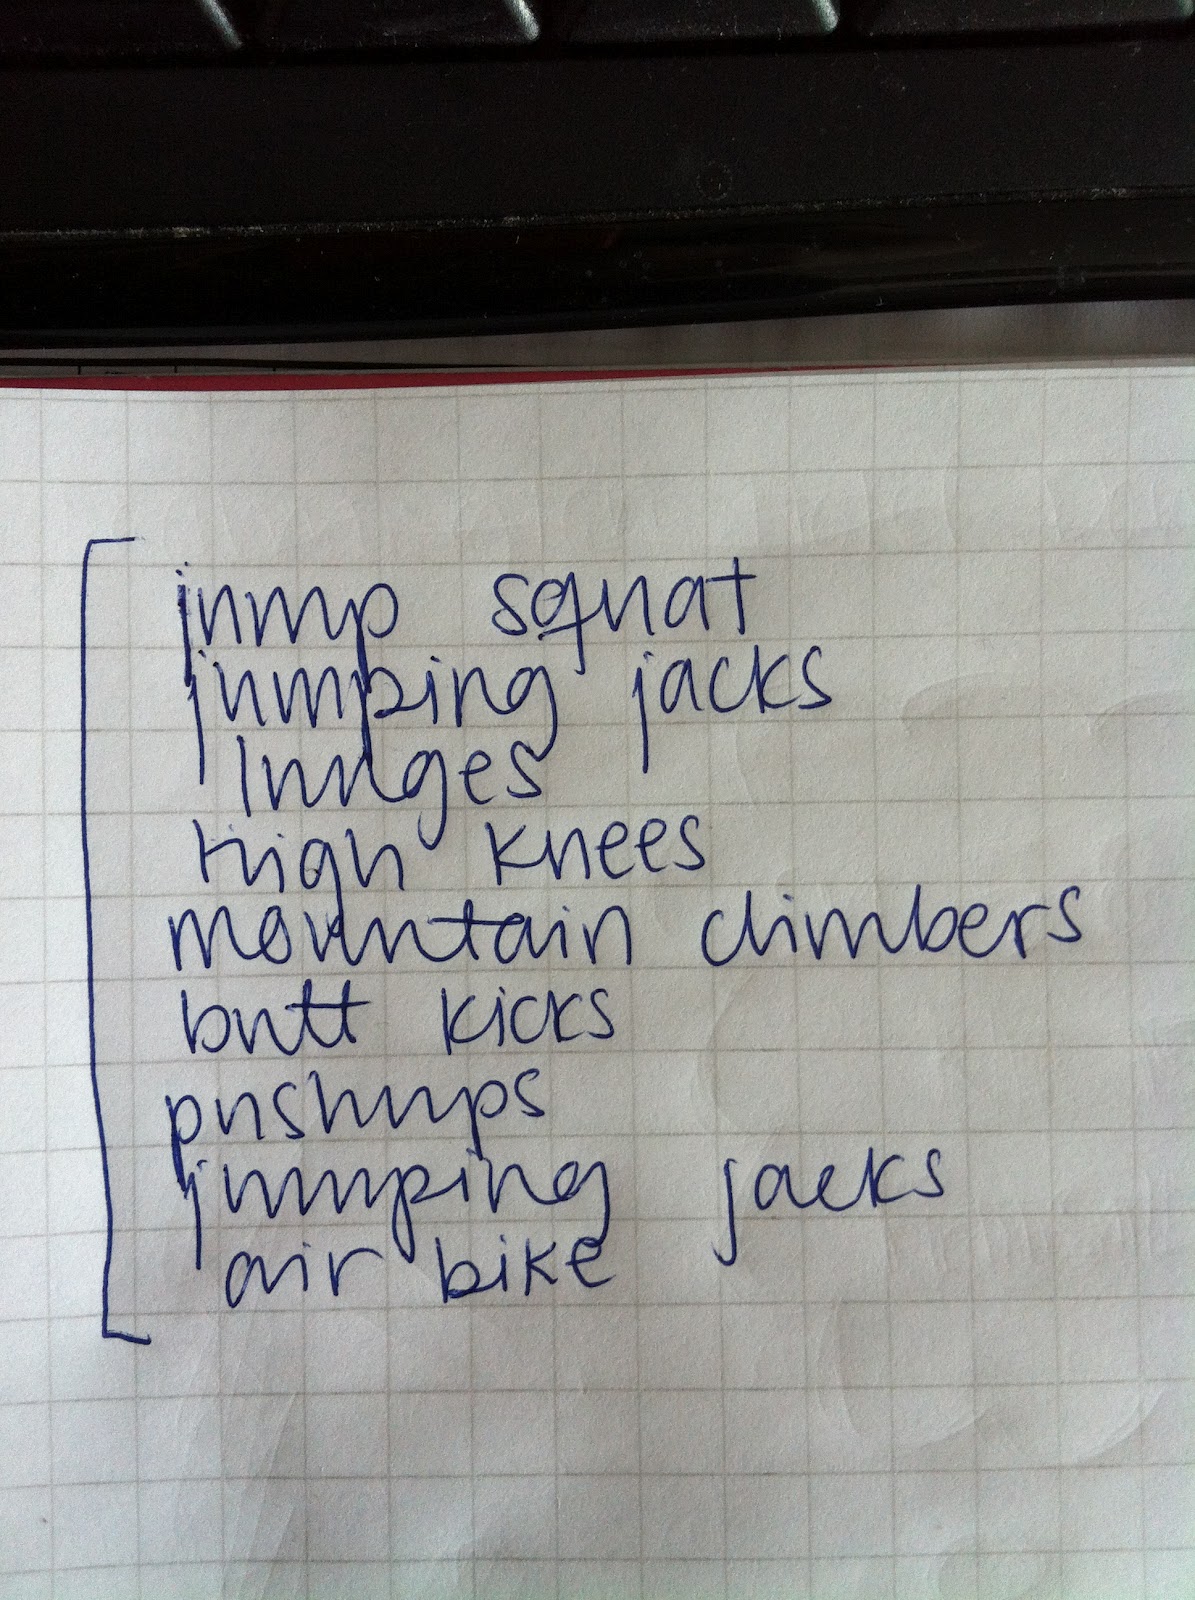 jump squat
jumping jacks
lunges
high knees
mountain climbers
butt kicks
pushups
jumping jacks
air bike